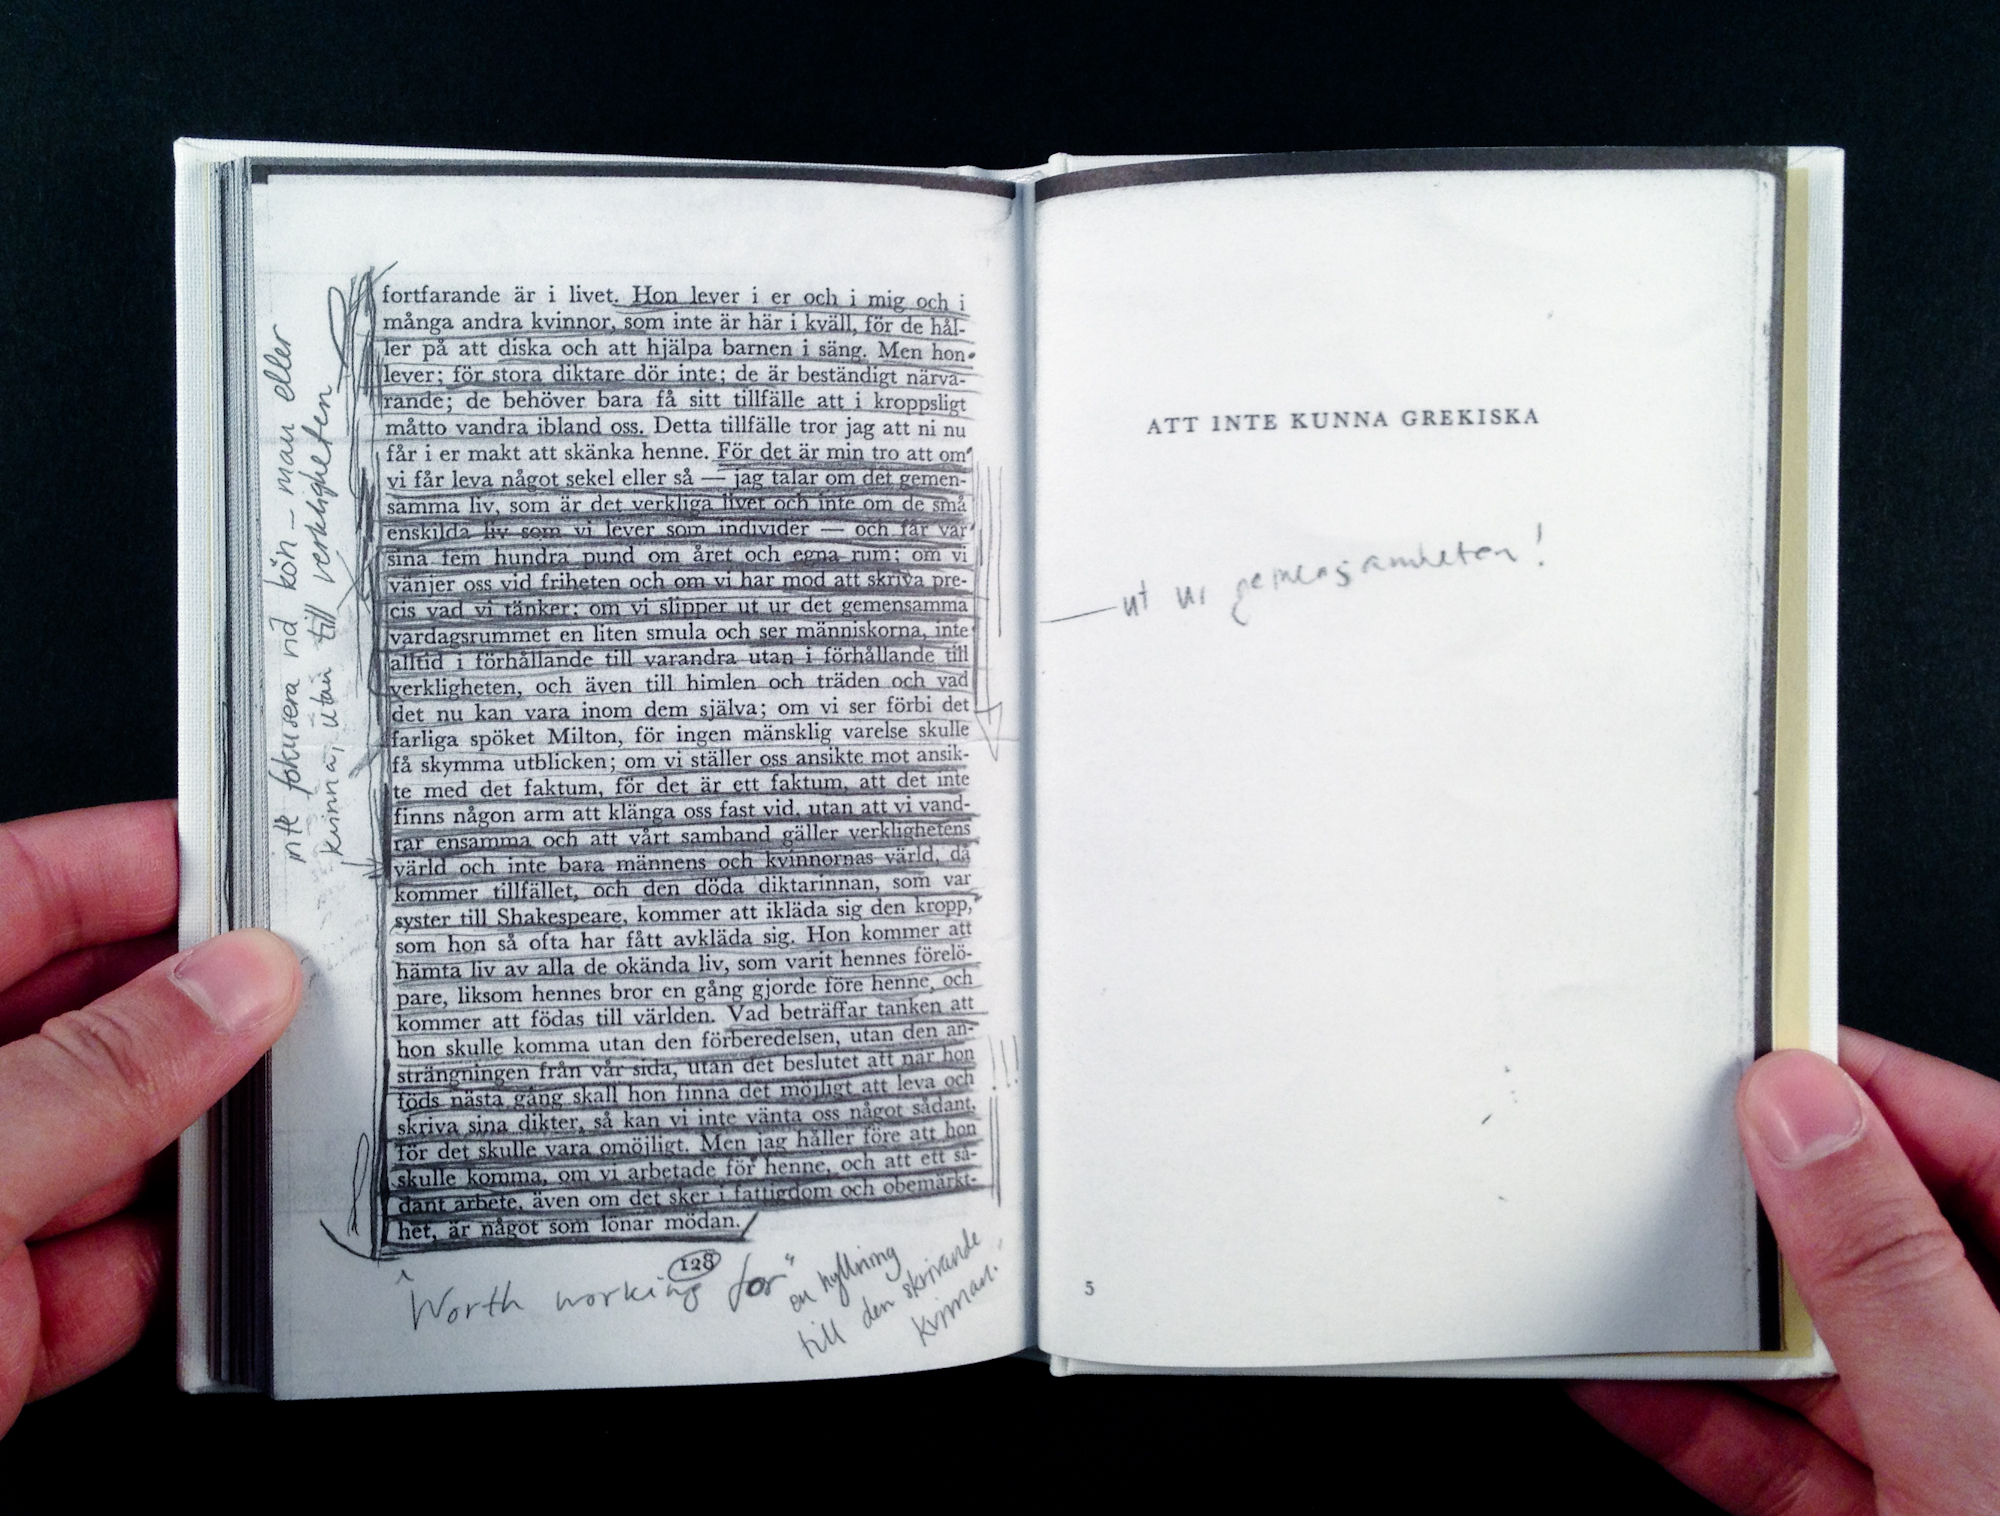 fortfarande är i livet. Hon lever i er och i mig och i
många andra kvinnor, som inte är här i kväll, för de hål-
ler på att diska och att hjälpa barnen i säng. Men hon
lever; för stora diktare dör inte; de är beständigt närva-
rande; de behöver bara få sitt tillfälle att i kroppsligt
måtto vandra ibland oss. Detta tillfälle tror jag att ni nu
får i er makt att skänka henne. För det är min tro att om
vi får leva något sekel eller så — jag talar om det gemen-
samma liv, som är det verkliga livet och inte om de små
enskilda liv som vi lever som individer — och får var
sina fem hundra pund om året och egna rum; om vi
vänjer oss vid friheten och om vi har mod att skriva pre-
cis vad vi tänker; om vi slipper ut ur det gemensamma
vardagsrummet en liten smula och ser människorna, inte
alltid i förhållande till varandra utan i förhållande till
verkligheten, och även till himlen och träden och vad
det nu kan vara inom dem själva; om vi ser förbi det
farliga spöket Milton, för ingen mänsklig varelse skulle
få skymma utblicken; om vi ställer oss ansikte mot ansik-
te med det faktum, för det är ett faktum, att det inte
finns någon arm att klänga oss fast vid, utan att vi vand-
rar ensamma och att vårt samband gäller verklighetens
värld och inte bara männens och kvinnornas värld, då
kommer tillfället, och den döda diktarinnan, som var
syster till Shakespeare, kommer att ikläda sig den kropp,
som hon så ofta har fått avkläda sig. Hon kommer att
hämta liv av alla de okända liv, som varit hennes förelö-
pare, liksom hennes bror en gång gjorde före henne, och
kommer att födas till världen. Vad beträffar tanken att
hon skulle komma utan den förberedelsen, utan den an-
strängningen från vår sida, utan det beslutet att när hon
föds nästa gång skall hon finna det möjligt att leva och
skriva sina dikter, så kan vi inte vänta oss något sådant,
för det skulle vara omöjligt. Men jag håller före att hon
skulle komma, om vi arbetade för henne, och att ett så-
dant arbete, även om det sker i fattigdom och obemärkt-
het, är något som lönar mödan.
128
inte fokusera vid kön – man eller
kvinna, utan till verkligheten
!!!
"Worth working for"
en hyllning
till den skrivande
kvinnan.
ATT INTE KUNNA GREKISKA
ut ur gemensamheten!
5